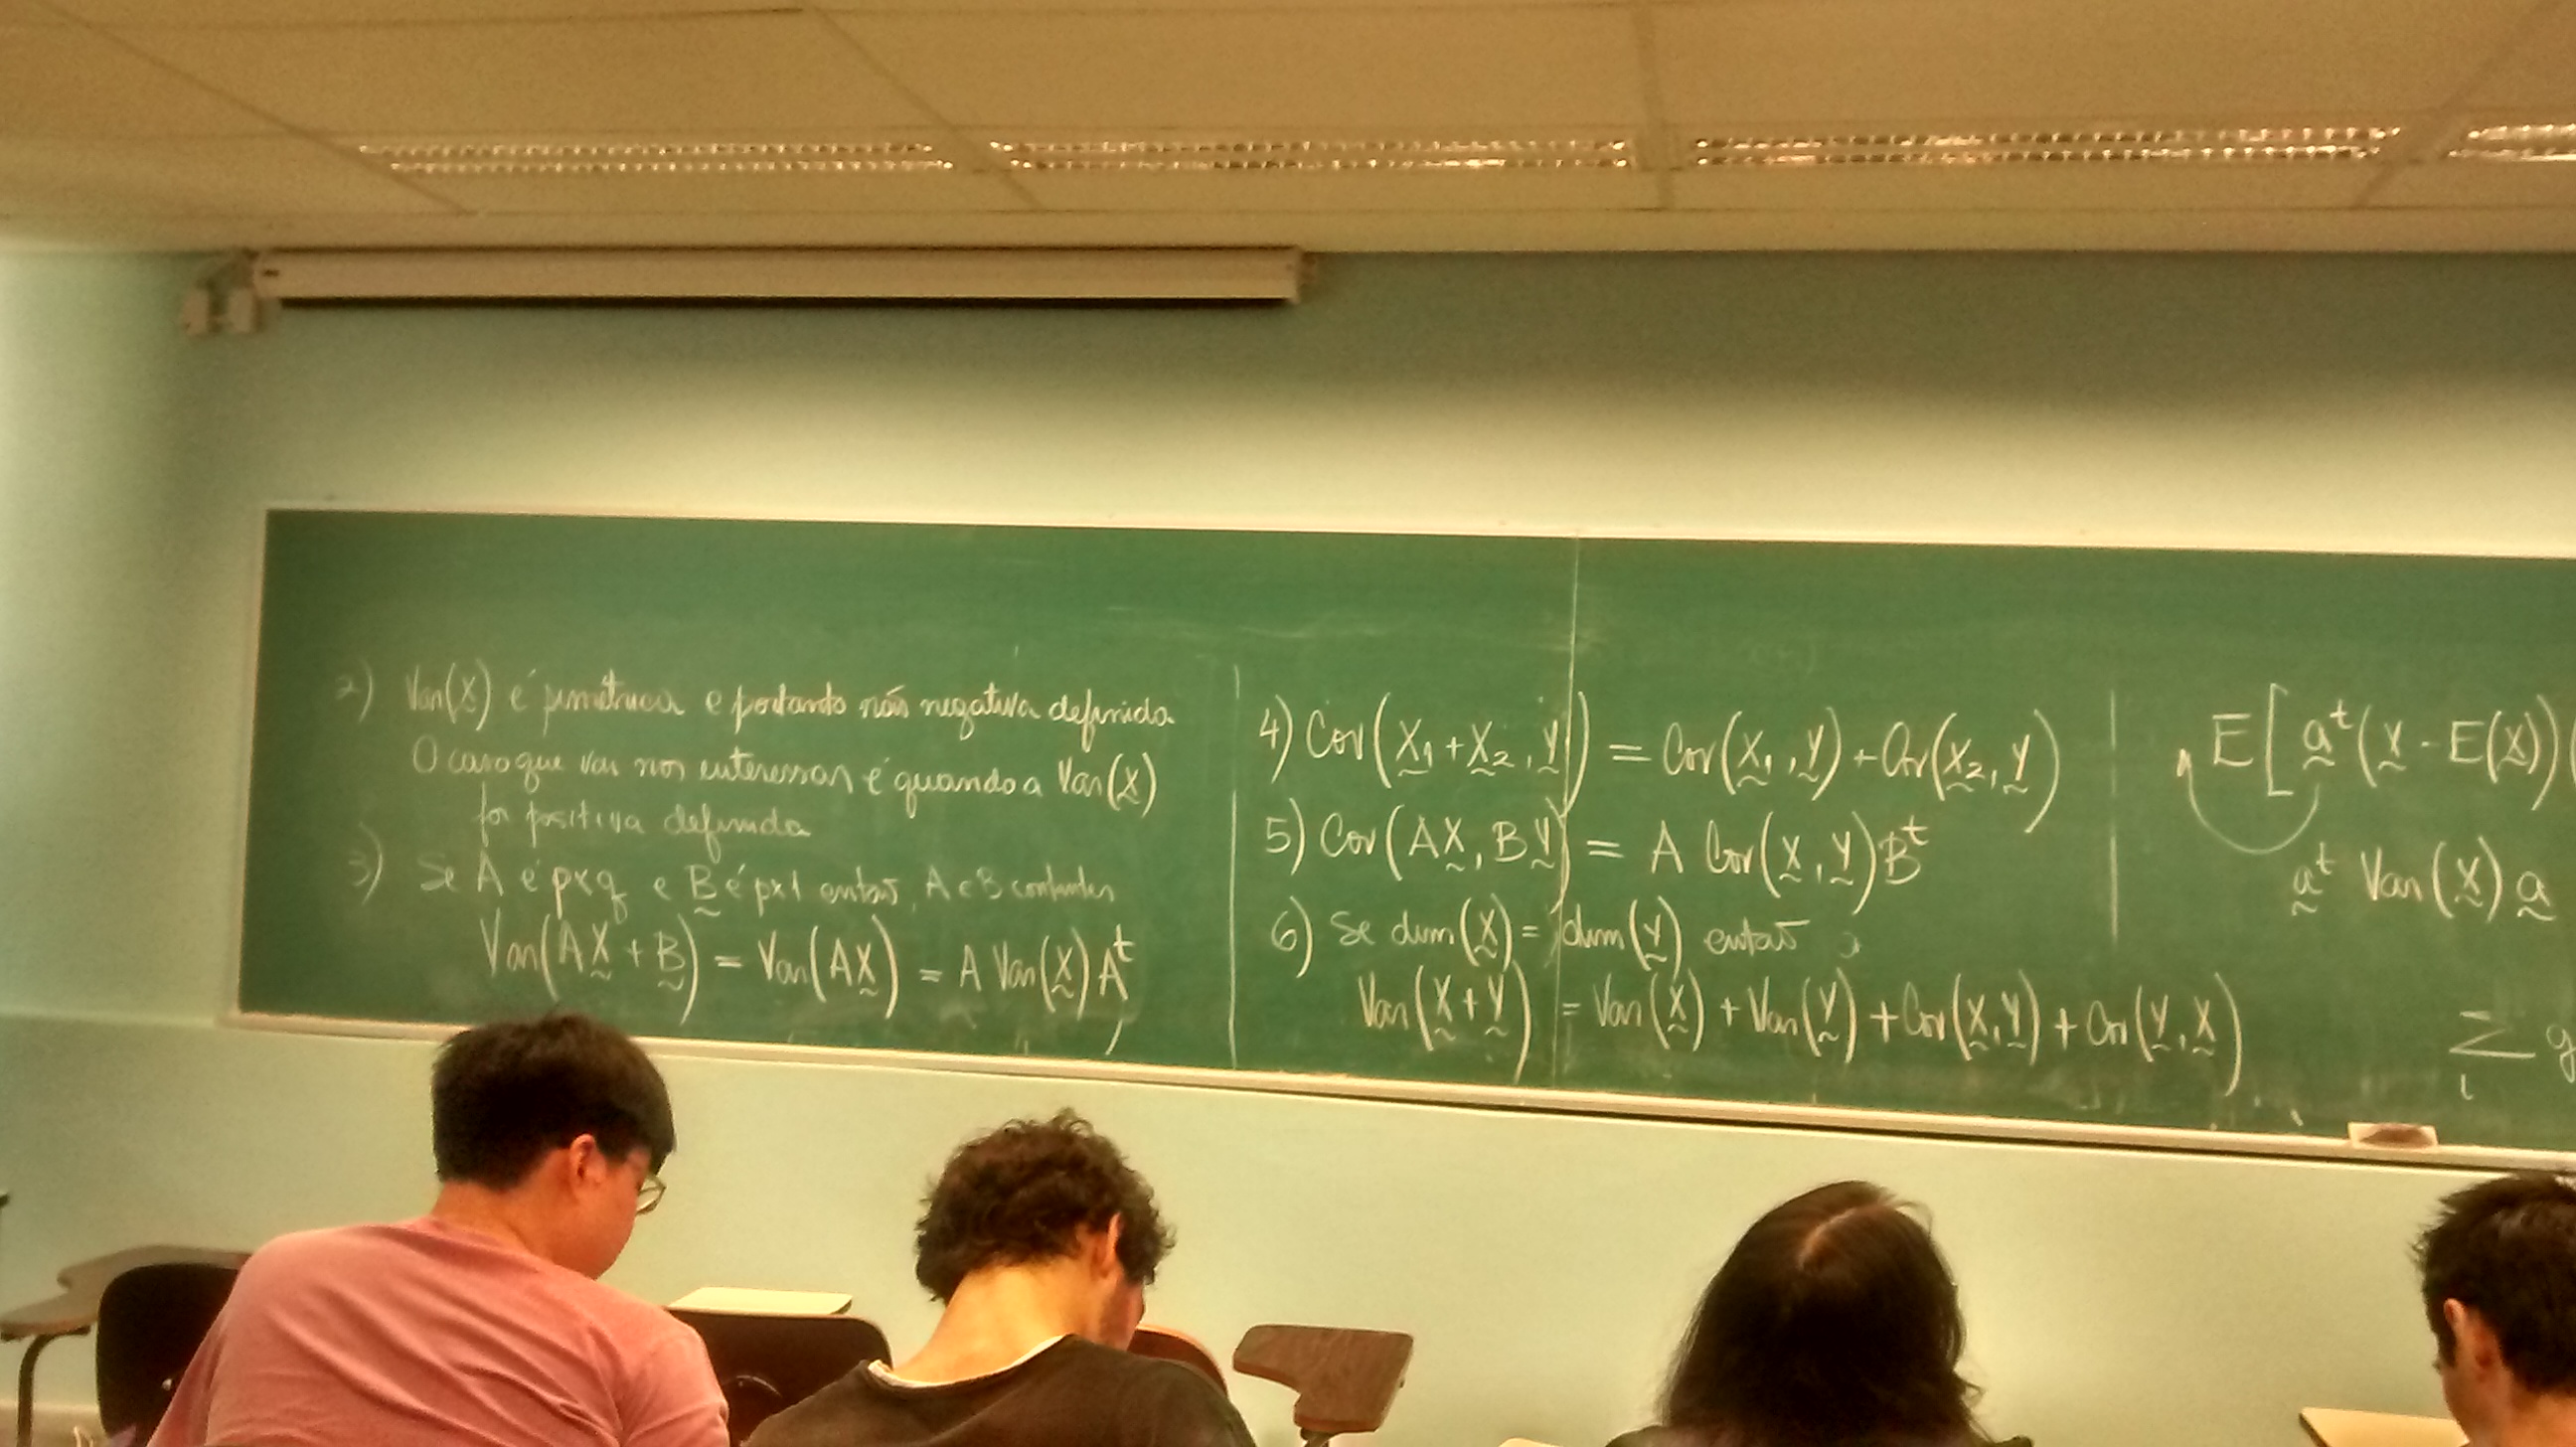 2) Var(X̰) é simétrica e portanto não negativa definida
O caso que vai nos interessar é quando a Var(X̰)
for positiva definida
3) Se A é pxq e B̰ é px1 então, A e B constantes
Var(AX̰ + B̰) = Var(AX̰) = A Var(X̰) Aᵗ
4) Cov(X̰₁ + X̰₂, Y̰) = Cov(X̰₁, Y̰) + Cov(X̰₂, Y̰)
5) Cov(AX̰, BY̰) = A Cov(X̰, Y̰) Bᵗ
6) Se dim(X̰) = dim(Y̰) então
Var(X̰ + Y̰) = Var(X̰) + Var(Y̰) + Cov(X̰, Y̰) + Cov(Y̰, X̰)
E[a̰ᵗ(X̰ - E(X̰))(
a̰ᵗ Var(X̰) a̰
Σ
i